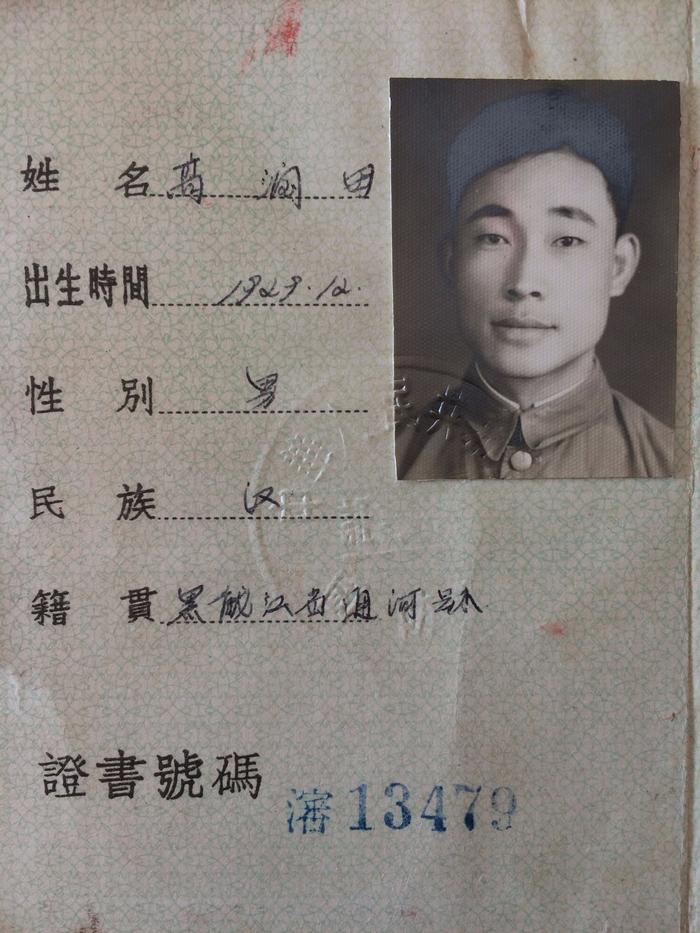 姓 名 高 润 田
出生時間 1929.12.
性 別 男
民 族 汉
籍 貫 黑龍江省通河縣
證書號碼
瀋 13479